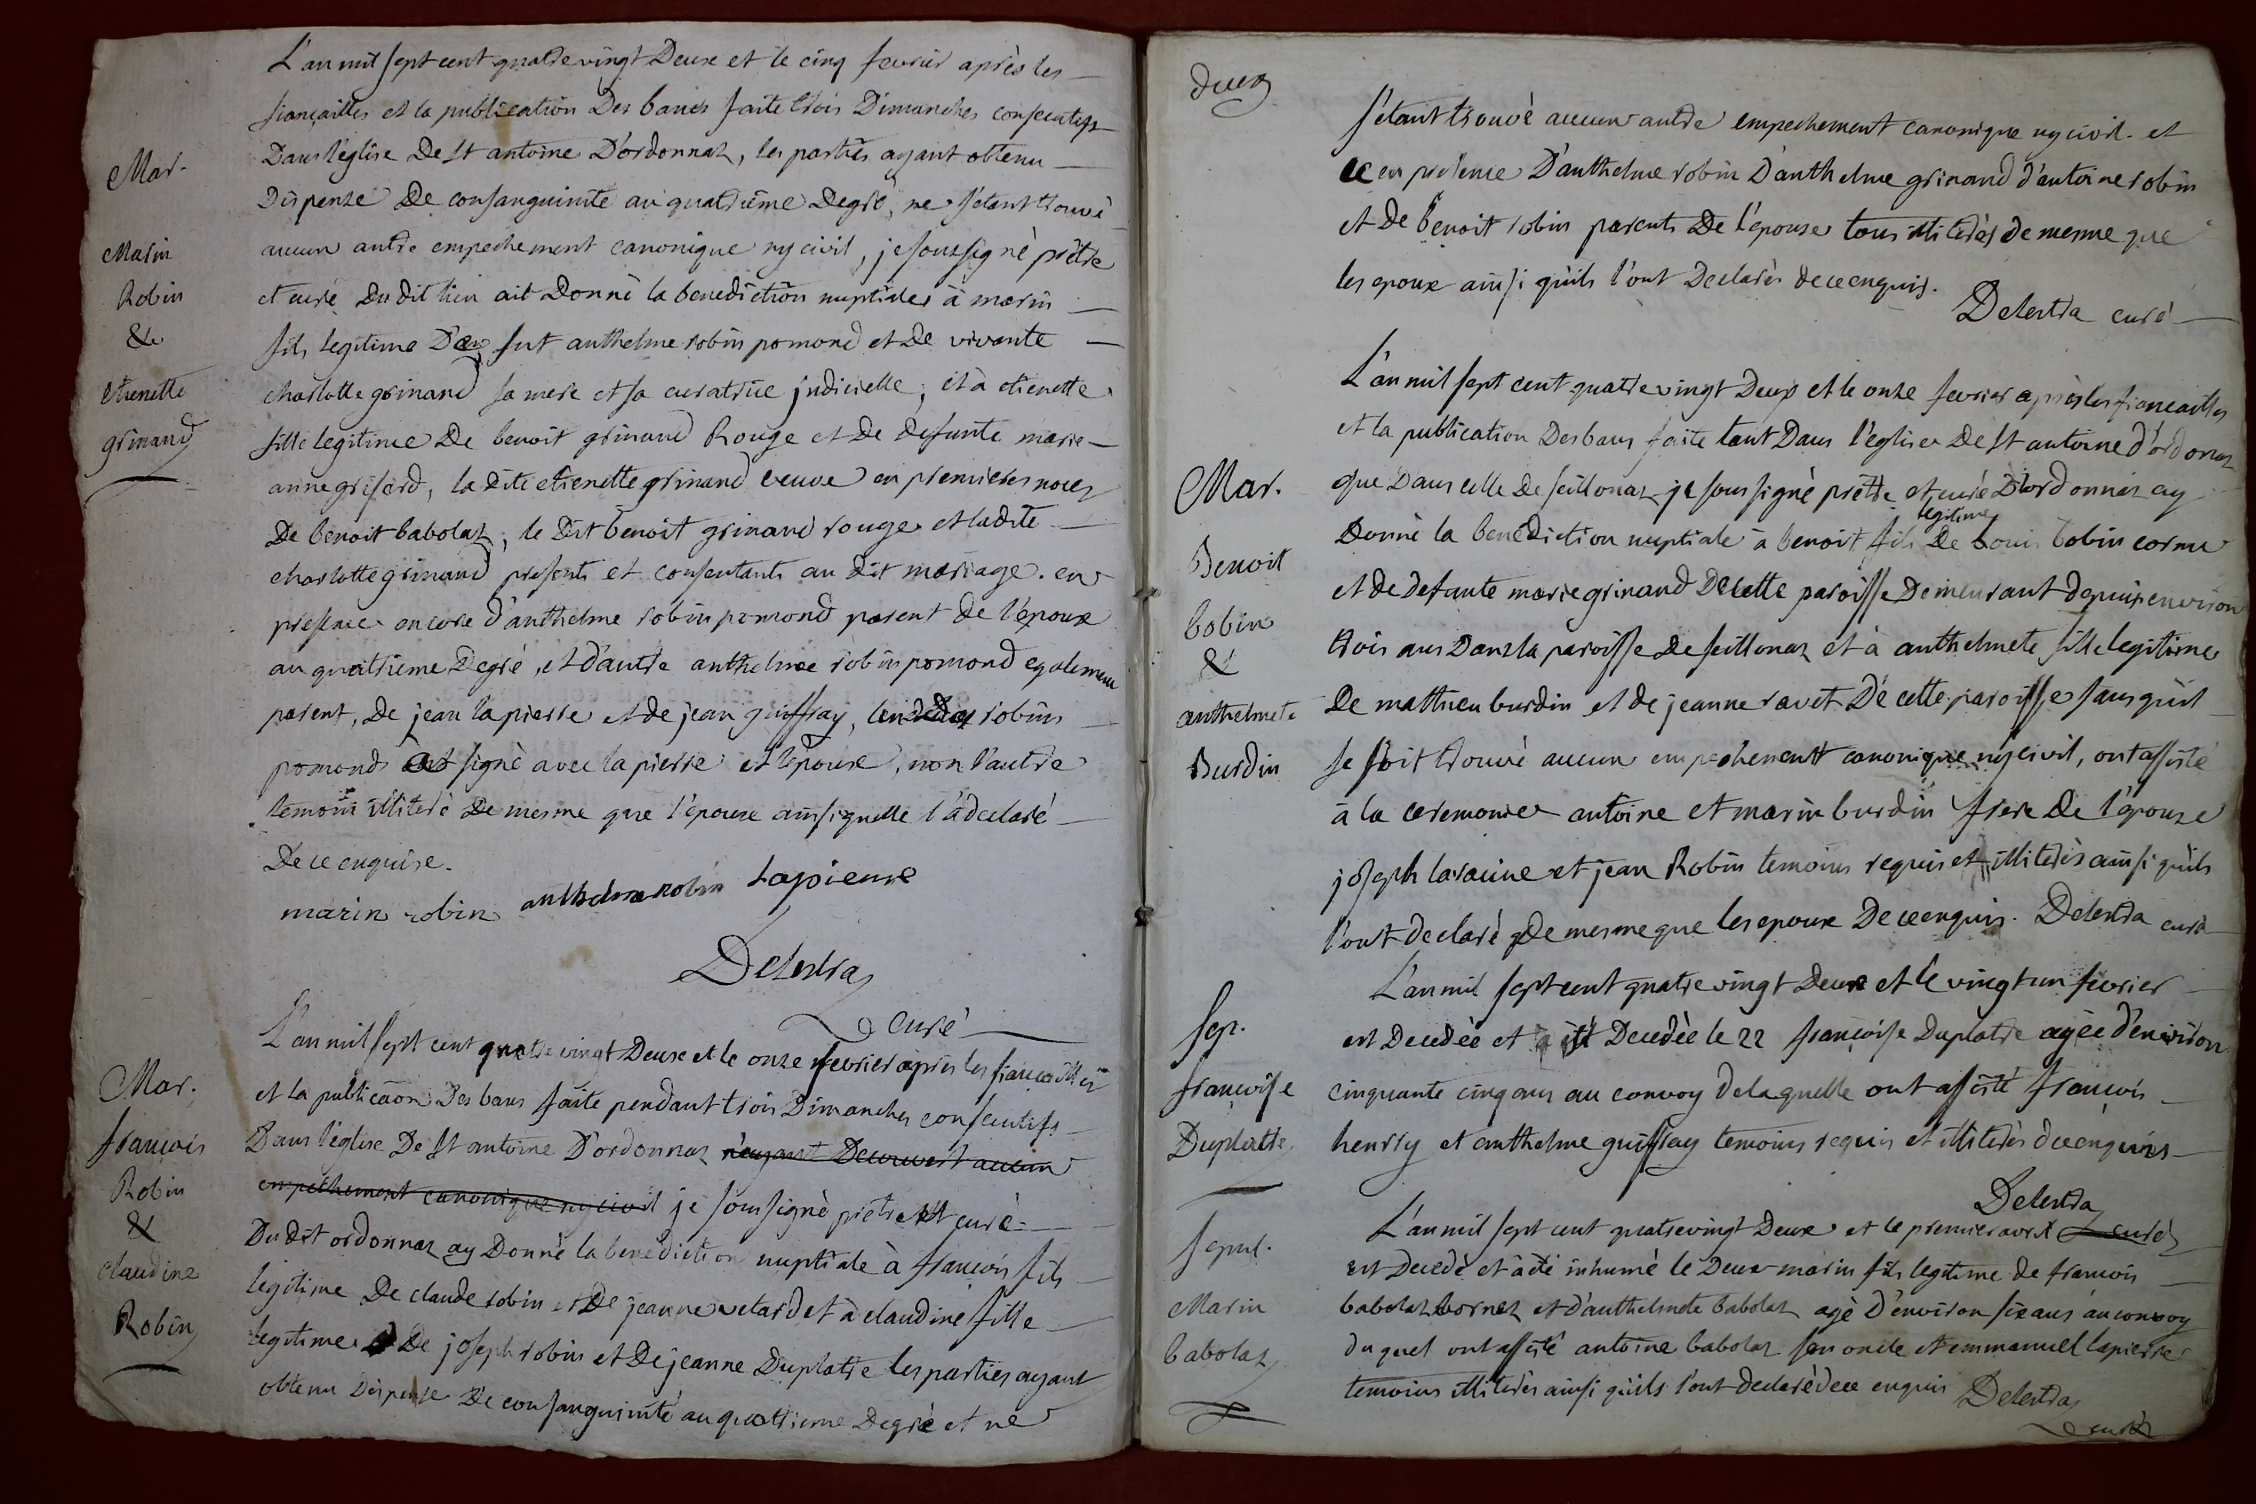 L'an mil sept cent quatre vingt Deux et le cinq fevrier après les
fiançailles et la publication Des bancs faite trois Dimanches consecutifs
Dans l'église De St antoine D'ordonnaz, les parties ayant obtenu
Dispense De consanguinité au quatrième Degré, ne s'étant trouvé
aucun autre empechement canonique ny civil, je soussigné prêtre
et curé Du dit lieu ait Donné la benediction nuptiales à marin
fils legitime fut anthelme robin pomond et De vivante
charlotte grinand sa mere et sa curatrice judicielle, et à etienette
fille legitime De benoit grinand Rouge et De defunte marie
anne grisard, la dite etienette grinand veuve en premieres noces
De benoit babolaz, le Dit benoit grinand rouge et ladite
charlotte grinand presents et consentants au dit mariage. en
presence encore d'anthelme robin pomond parent De l'epoux
au quatrieme Degré, et d'autre anthelme robin pomond egalement
parent, De jean lapierre et de jean guiffray, robin
pomond signé avec lapierre et l'epoux, non l'autre
temoin illiteré De mesme que l'epouse ainsi quelle l'a declaré
De ce enquise.
marin robin anthelme robin Lapierre
Delestra
curé
Mar.
Marin
Robin
&
etienette
grinand
L'an mil sept cent quatre vingt Deux et le onze fevrier après les fiançailles
et la publicaõn Des bans faite pendant trois Dimanches consecutifs
Dans l'église De St antoine D'ordonnaz n'ayant Decouvert aucun
empechement canonique ny civil je soussigné prêtre et curé
Du dit ordonnaz ay Donné la benediction nuptiale à françois fils
legitime De claude robin et De jeanne velard et à claudine fille
legitime De joseph robin et De jeanne Duplatre les parties ayant
obtenu Dispense De consanguinité au quatrieme Degré et ne
Mar.
françois
Robin
&
claudine
Robin
deux
s'étant trouvé aucun autre empechement canonique ny civil. et
ce en presence D'anthelme robin D'anthelme grinand d'antoine robin
et de benoit robin parents De l'epouse tous illiterés de mesme que
les epoux ainsi qu'ils l'ont Declarés de ce enquis.
Delestra curé
L'an mil sept cent quatre vingt Deux et le onze fevrier après les fiançailles
et la publication Des bans faite tant Dans l'eglise De St antoine d'ordonnaz
que Dans celle De seillonaz je soussigné prêtre et curé D'ordonnaz ay
legitime
Donné la benediction nuptiale a benoit fils De Louis bobin cornu
et de defunte marie grinand De cette paroisse Demeurant depuis environ
trois ans Dans la paroisse De seillonaz et à anthelmete fille legitime
De mathieu burdin et de jeanne ravet De cette paroisse sans qu'il
se soit trouvé aucun empechement canonique ny civil, ont assisté
à la ceremonie antoine et marin burdin frere De l'epouse
joseph laracine et jean Robin temoins requis et illiterés ainsi qu'ils
l'ont declaré De mesme que les epoux De ce enquis. Delestra curé
Mar.
Benoit
bobin
&
anthelmete
Burdin
L'an mil sept cent quatre vingt Deux et le vingt un fevrier
est Decedée et a été Decedée le 22 françoise Duplatre agée d'environ
cinquante cinq ans au convoy de laquelle ont assisté françois
henrry et anthelme guiffray temoins requis et illiterés de ce enquis
Delestra
curé
Sep.
françoise
Duplatre
L'an mil sept cent quatre vingt Deux et le premier avril
est Decedé et a été inhumé le Deux marin fils legitime de françois
babolaz bornez et d'anthelmete babolaz agé D'environ six ans au convoy
du quel ont assisté antoine babolaz son oncle et emmanuel lapierre
temoins illiterés ainsi qu'ils l'ont declaré de ce enquis Delestra
curé
Sepul.
Marin
babolaz